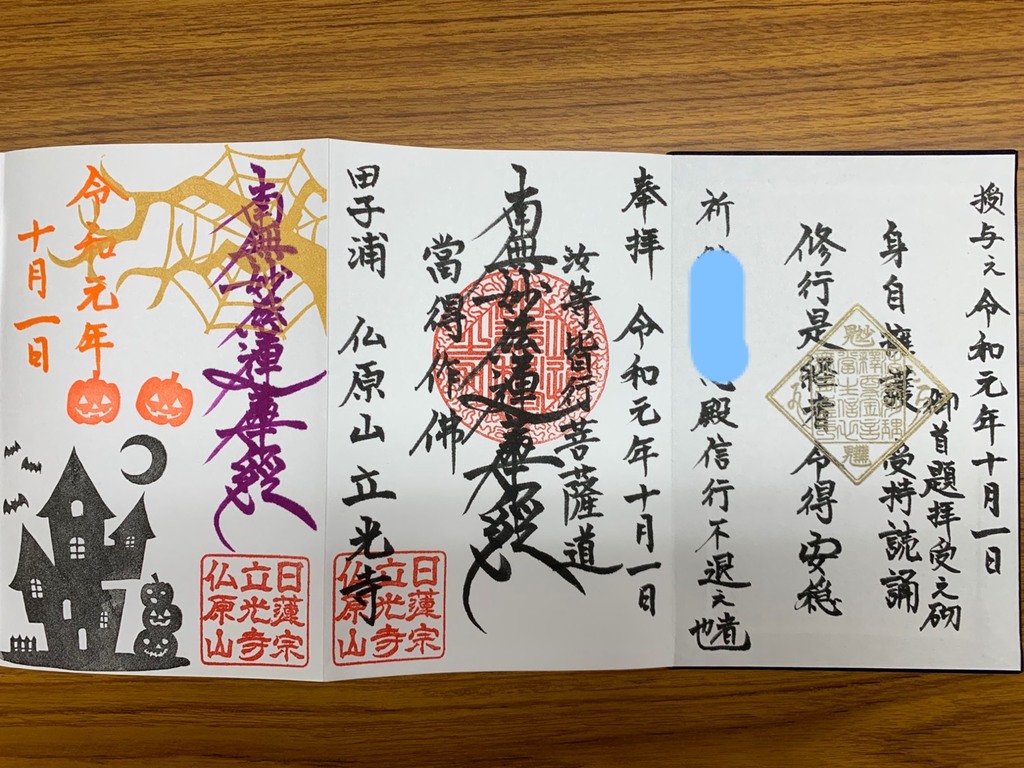 授与之 令和元年十月一日
御首題拝受之砌
身自擁護 受持読誦
修行是経者 令得安穏
祈
殿信行不退之者也
奉拝 令和元年十月一日
汝等皆行菩薩道
南無妙法蓮華経
當得作佛
田子浦 仏原山 立光寺
日蓮宗
立光寺
仏原山
南無妙法蓮華経
令和元年
十月一日
日蓮宗
立光寺
仏原山